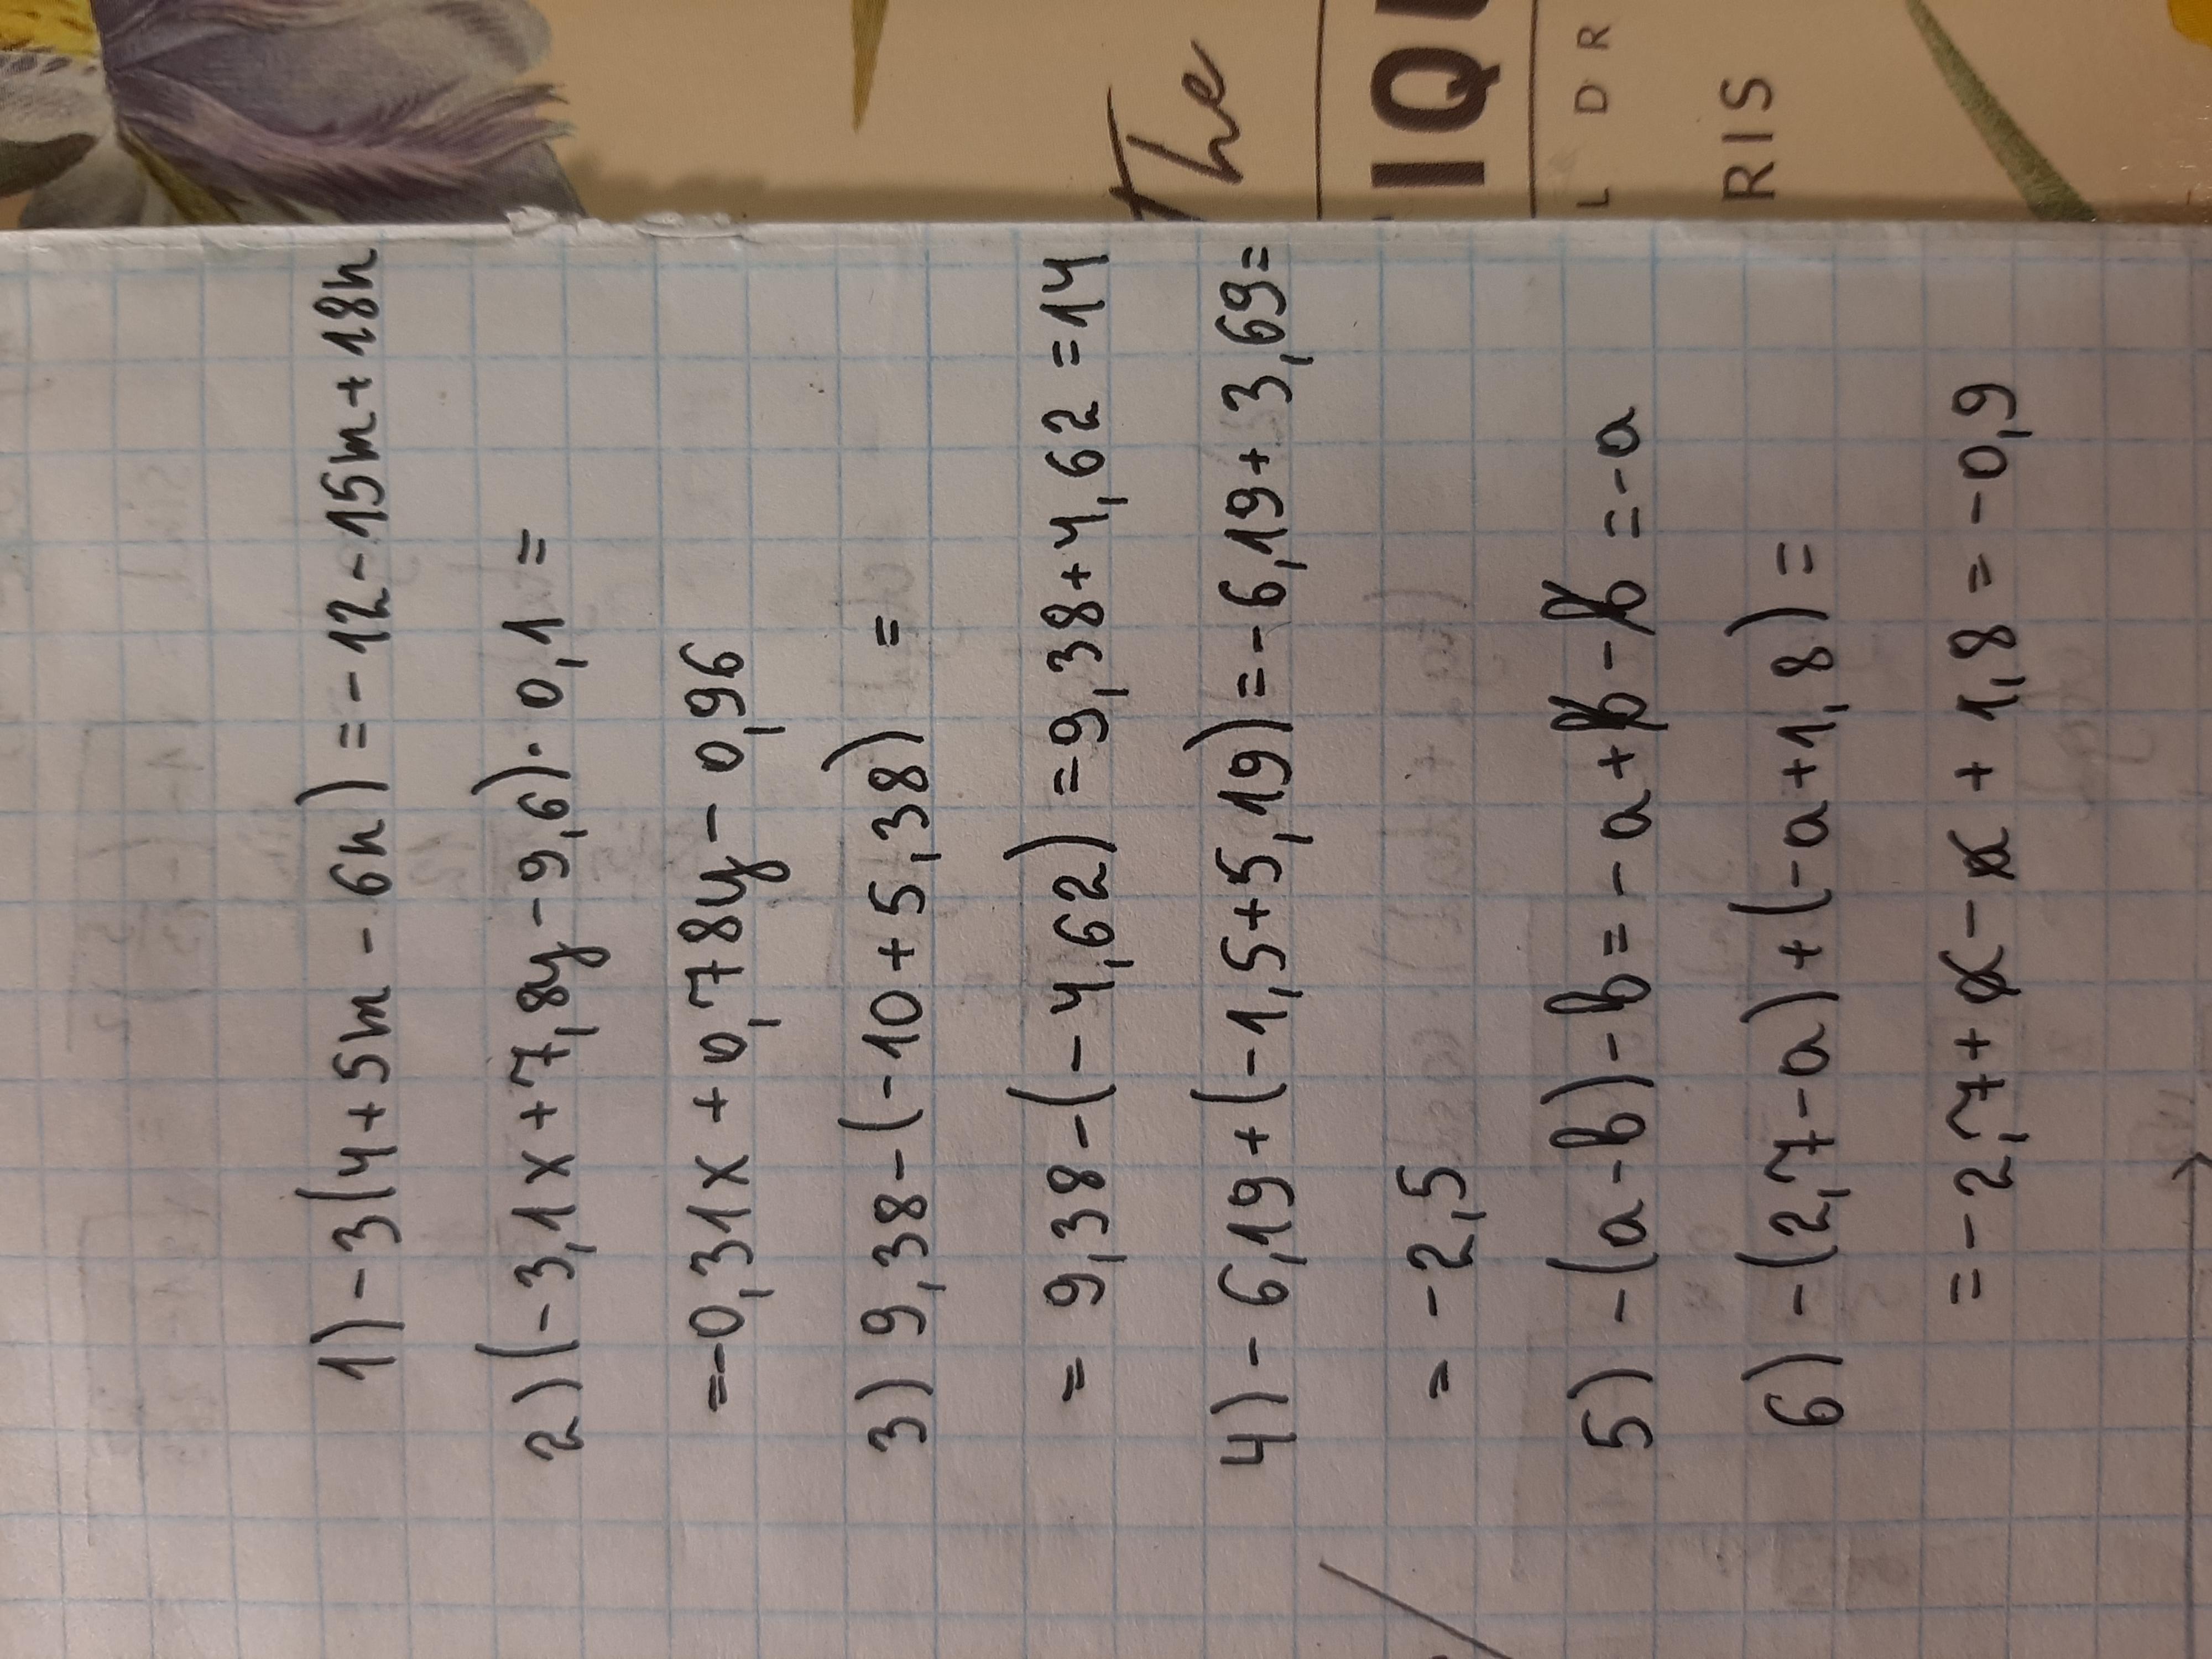 1) -3(4+5m-6n)=-12-15m+18n
2)(-3,1x+7,8y-9,6)·0,1=
=-0,31x+0,78y-0,96
3) 9,38-(-10+5,38) =
= 9,38-(-4,62)=9,38+4,62=14
4)-6,19+(-1,5+5,19)=-6,19+3,69=
= -2,5
5) -(a-b)-b=-a+b-b=-a
6) -(2,7-a)+(-a+1,8)=
=-2,7+a-a+1,8=-0,9
The
IQU
L D R
RIS